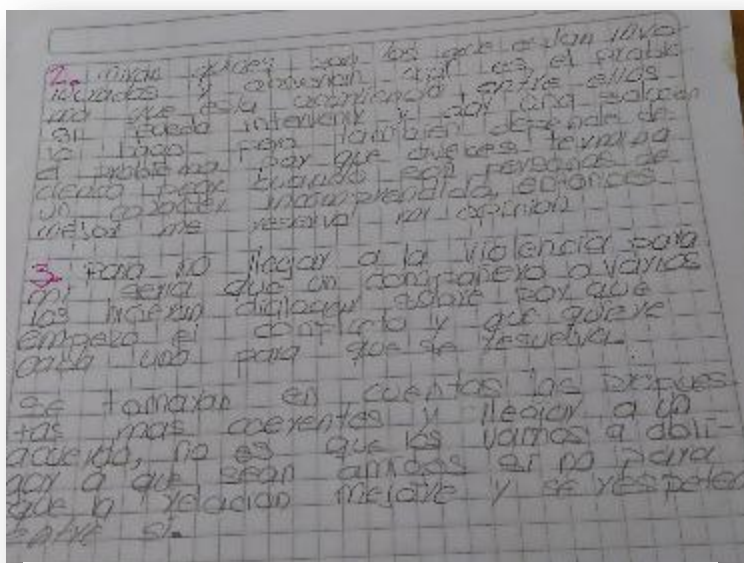 2. mirar quienes son los que están invo
lucrados y cual es el proble
ma que esta aconteciendo entre ellos
si puedo intervenir y dar una solución
lo hago pero tambien depende de
el problema por que aveces termina
siendo peor cuando son personas de
un caracter incomprendida, entonces
mejor me reservo mi opinion
3. Para no llegar a la violencia para
mi seria que un compañero o varios
los hicieran dialogar sobre por que
empezo el conflicto y que quiere
cada uno para que se resuelva.
se tomaran en cuentas las propues
tas mas coerentes y llegar a un
acuerdo, no es que los vamos a obli-
gar a que sean amigos si no para
que la relacion mejore y se respeten
entre si.